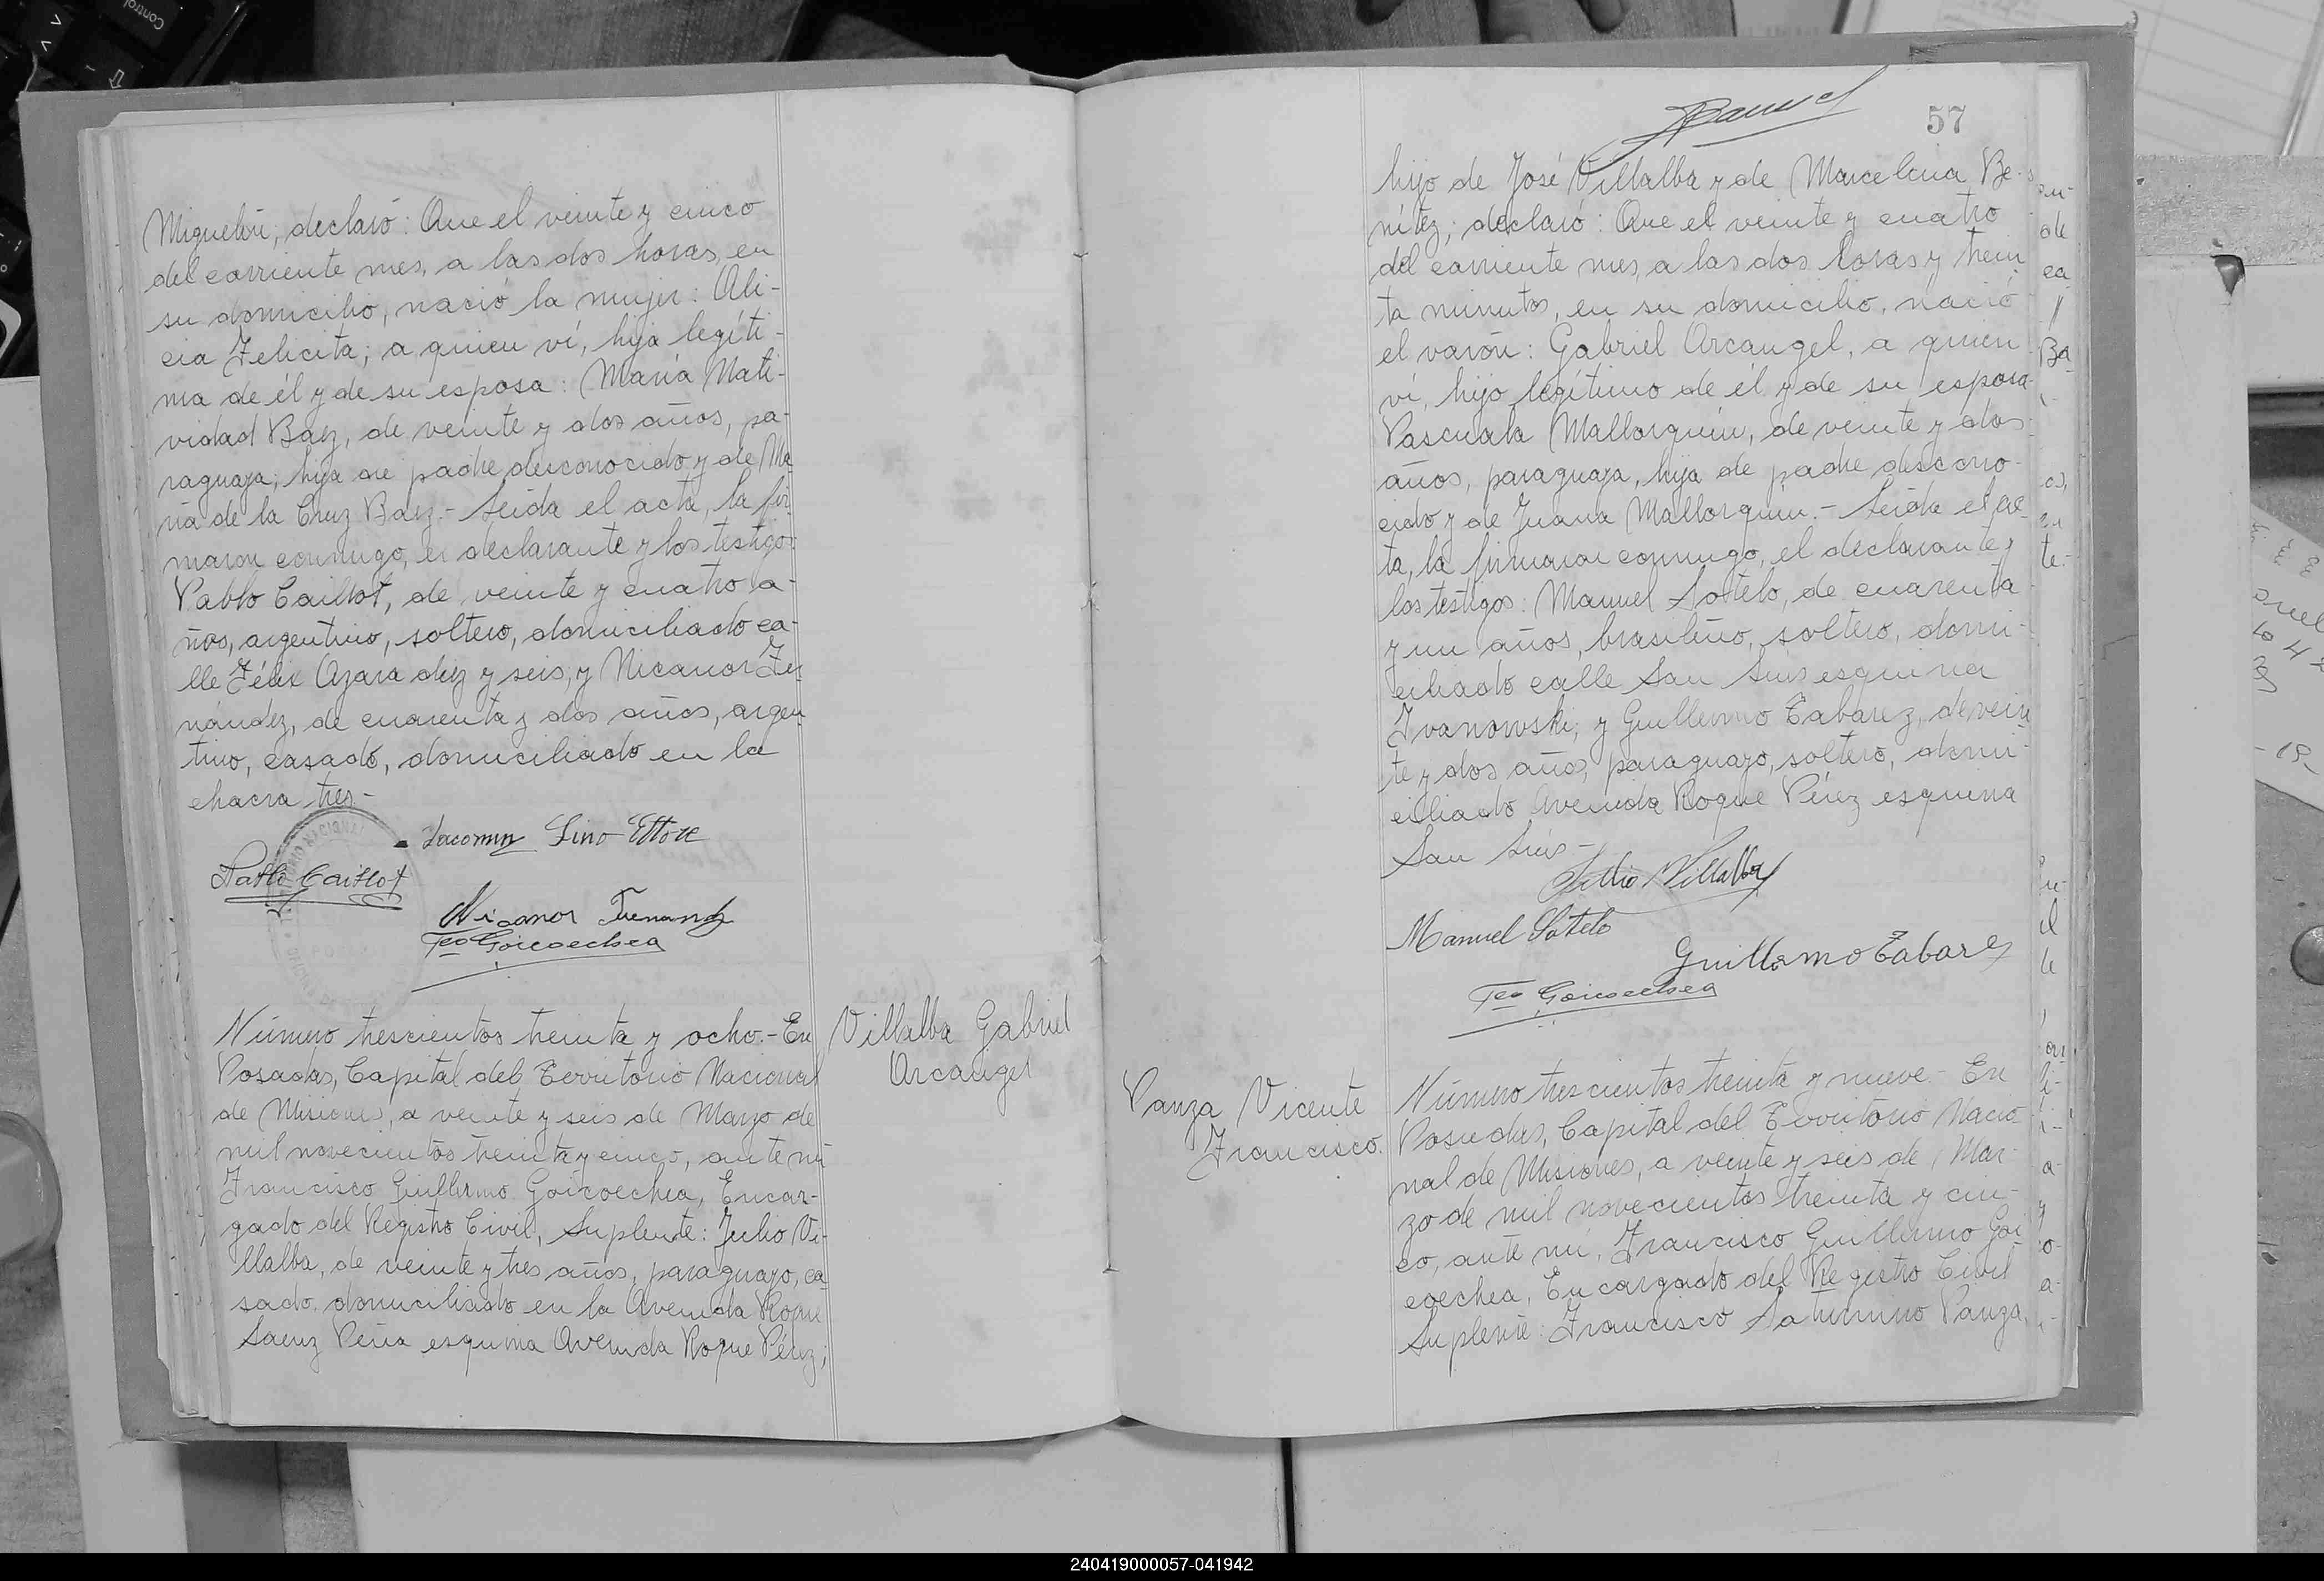 Miguelin, declaró: Que el veinte y cinco
del corriente mes, a las dos horas, en
su domicilio, nació la mujer: Ali-
cia Felicita; a quien ví, hija legíti-
ma de él y de su esposa: María Nati-
vidad Baez, de veinte y dos años, pa-
raguaya; hija de padre desconocido y de Ma
ría de la Cruz Baez.- Leida el acta, la fir
maron conmigo, el declarante y los testigos
Pablo Caillot, de veinte y cuatro a-
ños, argentino, soltero, domiciliado ca-
lle Félix Azara diez y seis, y Nicanor Fer
nández, de cuarenta y dos años, argen
tino, casado, domiciliado en la
chacra tres-
Lino Ettore
Pablo Caillot
Nicanor
Fco Goicoechea
Número trescientos treinta y ocho.- En
Posadas, Capital del Territorio Nacional
de Misiones, a veinte y seis de Marzo de
mil novecientos treinta y cinco, ante mi
Francisco Guillermo Goicoechea, Encar-
gado del Registro Civil, Suplente: Julio Vi-
llalba, de veinte y tres años, paraguayo, ca
sado, domiciliado en la Avenida Roque
Saenz Peña esquina Avenida Roque Pérez;
Villalba Gabriel
Arcangel
57
hijo de José Villalba y de Marcelina Be-
nítez; declaró: Que el veinte y cuatro
del corriente mes, a las dos horas y trein
ta minutos, en su domicilio, nació
el varón: Gabriel Arcangel, a quien
ví, hijo legítimo de él y de su esposa
Pascuala Mallorquin, de veinte y dos
años, paraguaya, hija de padre descono-
cido y de Juana Mallorquin.- Leida el ac
ta, la firmaron conmigo, el declarante y
los testigos: Manuel Sotelo, de cuarenta
y un años, brasileño, soltero, domi-
ciliado calle San Luis esquina
Ivanowski; y Guillermo Tabarez, de vein
te y dos años, paraguayo, soltero, domi-
ciliado Avenida Roque Pérez esquina
San Luis-
Julio Villalba
Manuel Sotelo
Guillermo Tabarez
Fco Goicoechea
Panza Vicente
Francisco.
Número trescientos treinta y nueve.- En
Posadas, Capital del Territorio Nacio
nal de Misiones, a veinte y seis de Mar-
zo de mil novecientos treinta y cin-
co, ante mi, Francisco Guillermo Goi
coechea, Encargado del Registro Civil
Suplente: Francisco Saturnino Panza,
240419000057-041942